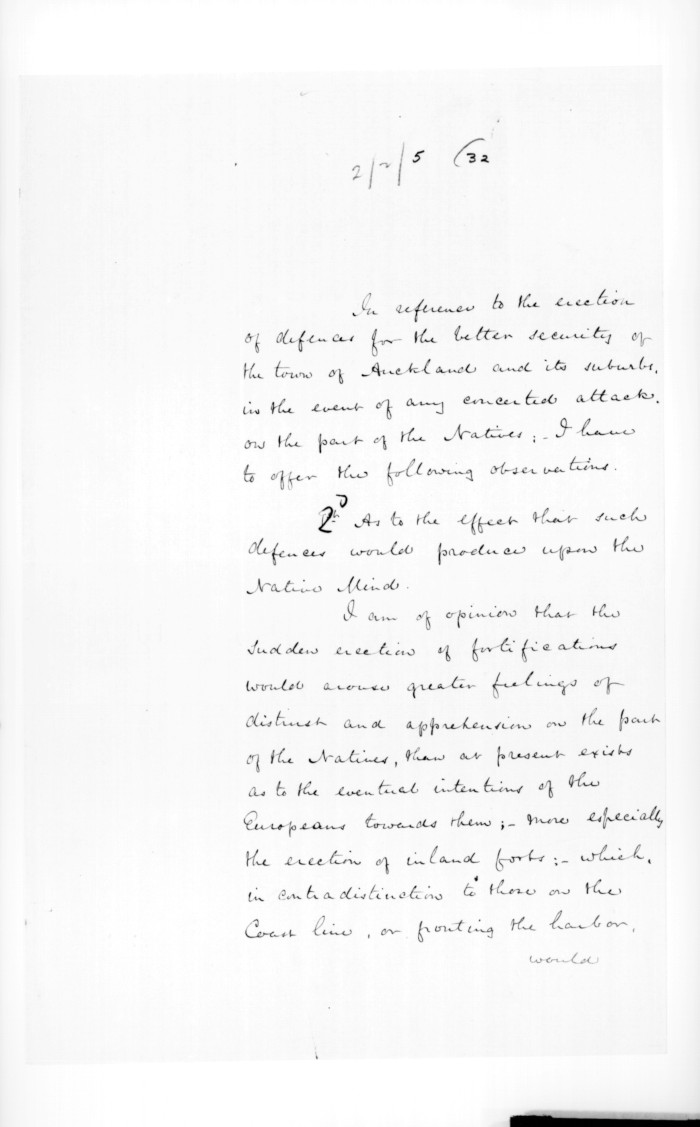 2/2/5 (32
In reference to the erection
of defences for the better security of
the town of Auckland and its suburbs,
in the event of any concerted attack,
on the part of the Natives; - I have
to offer the following observations.
2d As to the effect that such
defences would produce upon the
Native Mind.
I am of opinion that the
sudden erection of fortifications
would arouse greater feelings of
distrust and apprehension on the part
of the Natives, than at present exists
as to the eventual intentions of the
Europeans towards them; - more especially
the erection of inland forts: - which,
in contradistinction to those on the
Coast line, or fronting the harbor,
would